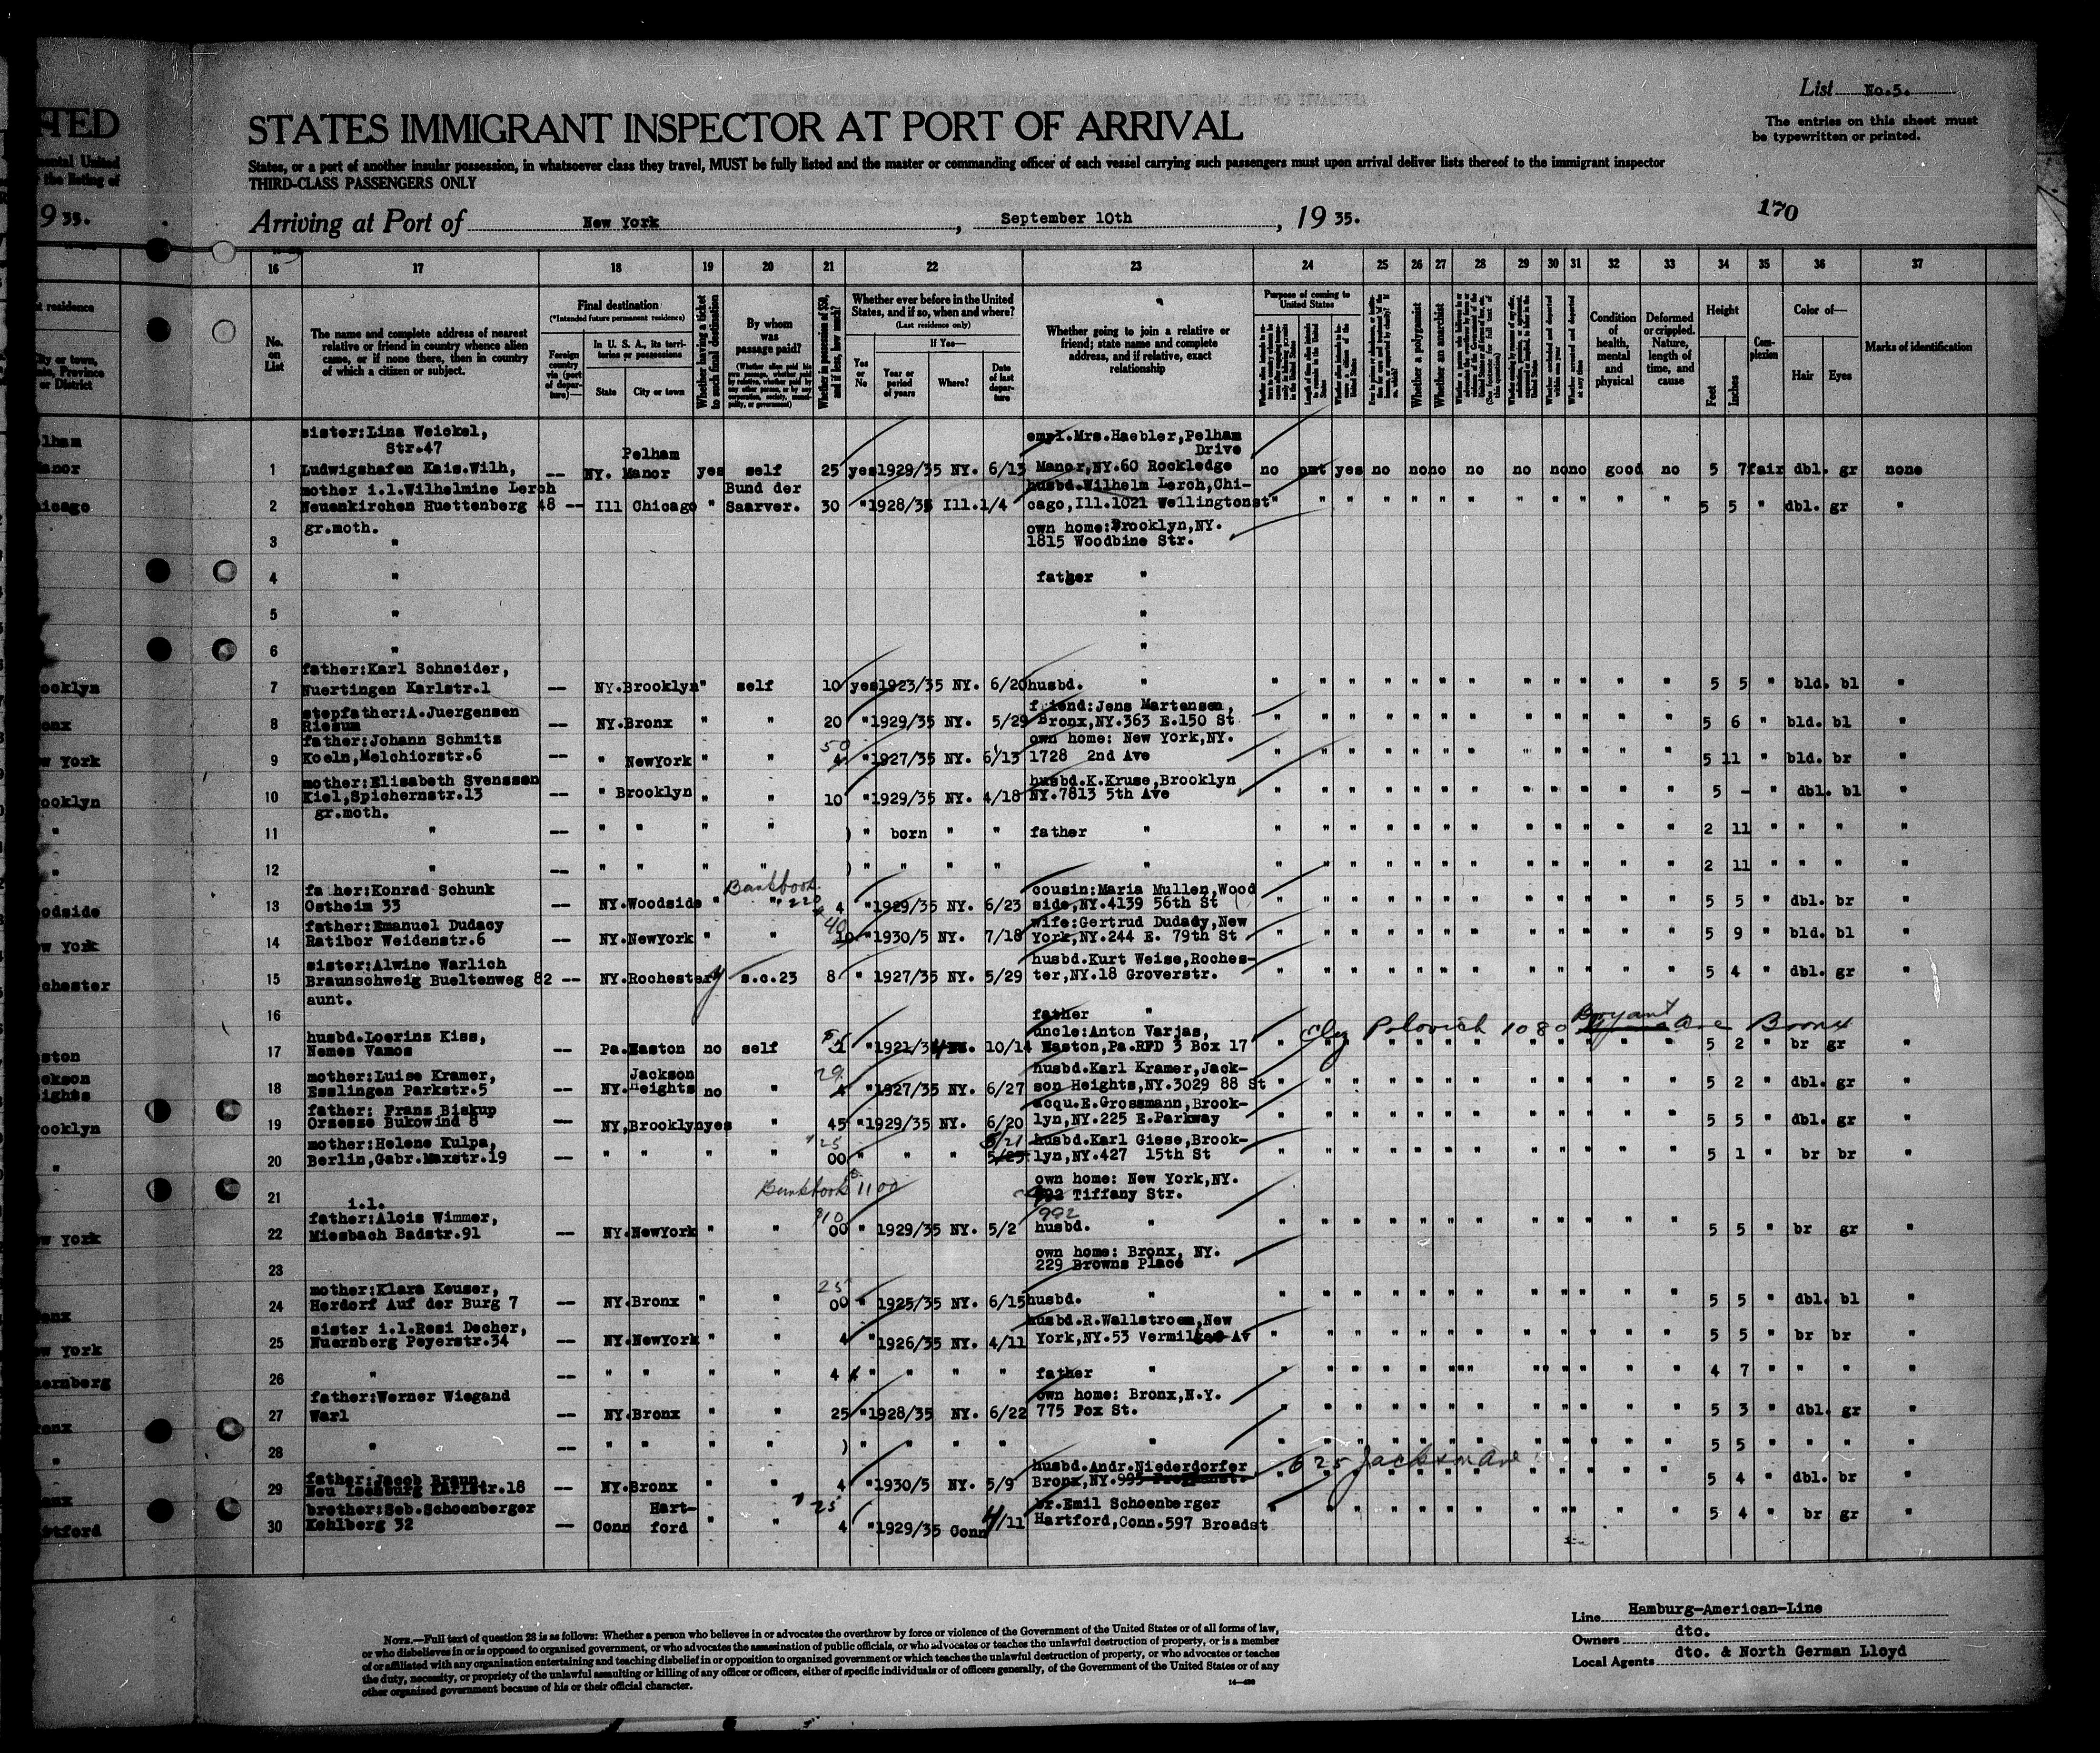 List No.5.
ATED
STATES IMMIGRANT INSPECTOR AT PORT OF ARRIVAL
The entries on this sheet must
be typewritten or printed.
States, or a port of another insular possession, in whatsoever class they travel, MUST be fully listed and the master or commanding officer of each vessel carrying such passengers must upon arrival deliver lists thereof to the immigrant inspector
THIRD-CLASS PASSENGERS ONLY
Arriving at Port of New York, September 10th, 19 35.
170
16 17 18 19 20 21 22 23 24 25 26 27 28 29 30 31 32 33 34 35 36 37
No. on List
The name and complete address of nearest relative or friend in country whence alien came, or if none there, then in country of which a citizen or subject.
Final destination
(*Intended future permanent residence)
Foreign country via (port of departure)—
In U. S. A., its territories or possessions
State
City or town
Whether having a ticket to such final destination
By whom was passage paid?
Whether in possession of $50, and if less, how much?
Whether ever before in the United States, and if so, when and where?
(Last residence only)
Yes or No
If Yes—
Year or period of years
Where?
Date of last departure
Whether going to join a relative or friend; state name and complete address, and if relative, exact relationship
Purpose of coming to United States
Whether a polygamist
Whether an anarchist
Condition of health, mental and physical
Deformed or crippled. Nature, length of time, and cause
Height
Feet
Inches
Complexion
Color of—
Hair
Eyes
Marks of identification
sister:Lina Weickel, Str.47
1 Ludwigshafen Kais.Wilh, -- NY. Pelham Manor yes self 25 yes 1929/35 NY. 6/13 empl.Mrs.Haebler,Pelham Drive Manor,NY.60 Rockledge no pmt yes no no no no no no no good no 5 7 fair dbl. gr none
mother i.l.Wilhelmine Lerch
2 Neuenkirchen Huettenberg 48 -- Ill Chicago " Bund der Saarver. 30 " 1928/35 Ill. 1/4 husbd.Wilhelm Lerch,Chicago,Ill.1021 Wellingtonst " " " " " " " " " " " " 5 5 " dbl. gr "
gr.moth.
3 " own home:Brooklyn,NY. 1815 Woodbine Str.
4 " father "
5 " "
6 " "
father:Karl Schneider,
7 Nuertingen Karlstr.1 -- NY. Brooklyn " self 10 yes 1923/35 NY. 6/20 husbd. " " " " " " " " " " " " " 5 5 " bld. bl "
stepfather:A.Juergensen
8 Riesum -- NY. Bronx " " 20 " 1929/35 NY. 5/29 friend:Jens Martensen, Bronx,NY.363 E.150 St " " " " " " " " " " " " 5 6 " bld. bl "
father:Johann Schmitz
9 Koeln,Melchiorstr.6 -- " NewYork " " 50 4 " 1927/35 NY. 6/13 own home: New York,NY. 1728 2nd Ave " " " " " " " " " " " " 5 11 " bld. br "
mother:Elisabeth Svenssen
10 Kiel,Spichernstr.13 -- " Brooklyn " " 10 " 1929/35 NY. 4/18 husbd.K.Kruse,Brooklyn NY.7813 5th Ave " " " " " " " " " " " " 5 - " dbl. bl "
gr.moth.
11 " -- " " " " ) " born " " father " " " " " " " " " " " " " 2 11 " " " "
12 " -- " " " " ) " " " " " " " " " " " " " " " " " 2 11 " " " "
father:Konrad Schunk
13 Ostheim 33 -- NY. Woodside " Bankbook " 220 4 " 1929/35 NY. 6/23 cousin:Maria Mullen,Wood side,NY.4139 56th St " " " " " " " " " " " " 5 5 " dbl. br "
father:Emanuel Dudacy
14 Ratibor Weidenstr.6 -- NY. NewYork " " 40 10 " 1930/5 NY. 7/18 wife:Gertrud Dudady,New York,NY.244 E. 79th St " " " " " " " " " " " " 5 9 " bld. bl "
sister:Alwine Warlich
15 Braunschweig Bueltenweg 82 -- NY. Rochester y s.c.23 8 " 1927/35 NY. 5/29 husbd.Kurt Weise,Rochester,NY.18 Groverstr. " " " " " " " " " " " " 5 4 " dbl. gr "
aunt.
16 father "
husbd.Loerinz Kiss,
17 Nemes Vamos -- Pa. Easton no self " 1921/34 10/14 uncle:Anton Varjas, Easton,Pa.RFD 3 Box 17 1080 Bryant Ave Bronx 5 2 " br gr "
mother:Luise Kramer,
18 Esslingen Parkstr.5 -- NY. Jackson Heights no " 29 4 " 1927/35 NY. 6/27 husbd.Karl Kramer,Jackson Heights,NY.3029 88 St " " " " " " " " " " " " 5 2 " dbl. gr "
father: Franz Biskup
19 Orzesse Bukowind 8 -- NY, Brooklyn yes " 45 " 1929/35 NY. 6/20 acqu.E.Grossmann,Brooklyn,NY.225 E.Parkway " " " " " " " " " " " " 5 5 " dbl. gr "
mother:Helene Kulpa,
20 Berlin,Gabr.Maxstr.19 -- " " " " 25 00 " " " 5/21 husbd.Karl Giese,Brooklyn,NY.427 15th St " " " " " " " " " " " " 5 1 " br br "
21 Bankbook 1100 own home: New York,NY. Tiffany Str. 992
i.l.
father:Alois Wimmer,
22 Miesbach Badstr.91 -- NY. NewYork " " $10 00 " 1929/35 NY. 5/2 husbd. " " " " " " " " " " " " " 5 5 " br gr "
23 own home: Bronx, NY. 229 Browns Place
mother:Klara Keuser,
24 Herdorf Auf der Burg 7 -- NY. Bronx " " 25 00 " 1925/35 NY. 6/15 husbd. " " " " " " " " " " " " " 5 5 " dbl. bl "
sister i.l.Resi Decher,
25 Nuernberg Peyerstr.34 -- NY. NewYork " " 4 " 1926/35 NY. 4/11 husbd.R.Wallstroem,New York,NY.53 Av " " " " " " " " " " " " 5 5 " br br "
26 " -- " " " " 4 " " " " father " " " " " " " " " " " " " 4 7 " " " "
father:Werner Wiegand
27 Warl -- NY. Bronx " " 25 " 1928/35 NY. 6/22 own home: Bronx,N.Y. 775 Fox St. " " " " " " " " " " " " 5 3 " dbl. gr "
28 " -- " " " " ) " " " " " " " " " " " " " " " " " 5 5 " " " "
father:Jacob Braun
29 Neu Isenburg Karlstr.18 -- NY. Bronx " " 4 " 1930/5 NY. 5/9 husbd.Andr.Niederdorfer Bronx,NY. 625 Jackson Ave 5 4 " dbl. br "
brother:Seb.Schoenberger
30 Kehlberg 32 -- Conn Hartford " " 25 4 " 1929/35 Conn 4/11 br.Emil Schoenberger Hartford,Conn.597 Broadst " " " " " " " " " " " " 5 4 " br gr "
Line Hamburg-American-Line
Owners dto.
Local Agents dto. & North German Lloyd
NOTE.—Full text of question 28 is as follows: Whether a person who believes in or advocates the overthrow by force or violence of the Government of the United States or of all forms of law,
or who disbelieves in or is opposed to organized government, or who advocates the assassination of public officials, or who advocates or teaches the unlawful destruction of property, or is a member
of or affiliated with any organization entertaining and teaching disbelief in or opposition to organized government or which teaches the unlawful destruction of property, or who advocates or teaches
the duty, necessity, or propriety of the unlawful assaulting or killing of any officer or officers, either of specific individuals or of officers generally, of the Government of the United States or of any
other organized government because of his or their official character.